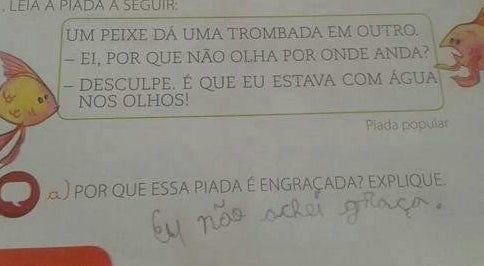 . LEIA A PIADA A SEGUIR:
UM PEIXE DÁ UMA TROMBADA EM OUTRO.
– EI, POR QUE NÃO OLHA POR ONDE ANDA?
– DESCULPE. É QUE EU ESTAVA COM ÁGUA
NOS OLHOS!
Piada popular
a) POR QUE ESSA PIADA É ENGRAÇADA? EXPLIQUE.
Eu não achei graça.